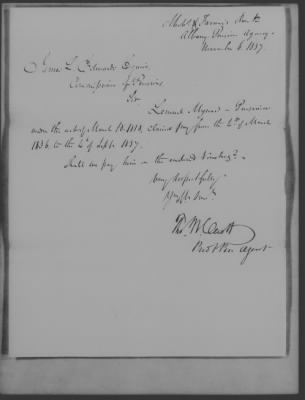 Mech & Farmers Bank
Albany Pension Agency
November 6. 1837.
James L. Edwards Esquire
Commissioner of Pensions
Sir
Lemuel a Pensioner
under the act of March 18. 1818, claims pay from the 4th of March
1836, to the 4th of Septr 1837.
Shall we pay him on the enclosed vouchers?
Very respectfully
Thos. W. Olcott
Prest Pen Agent